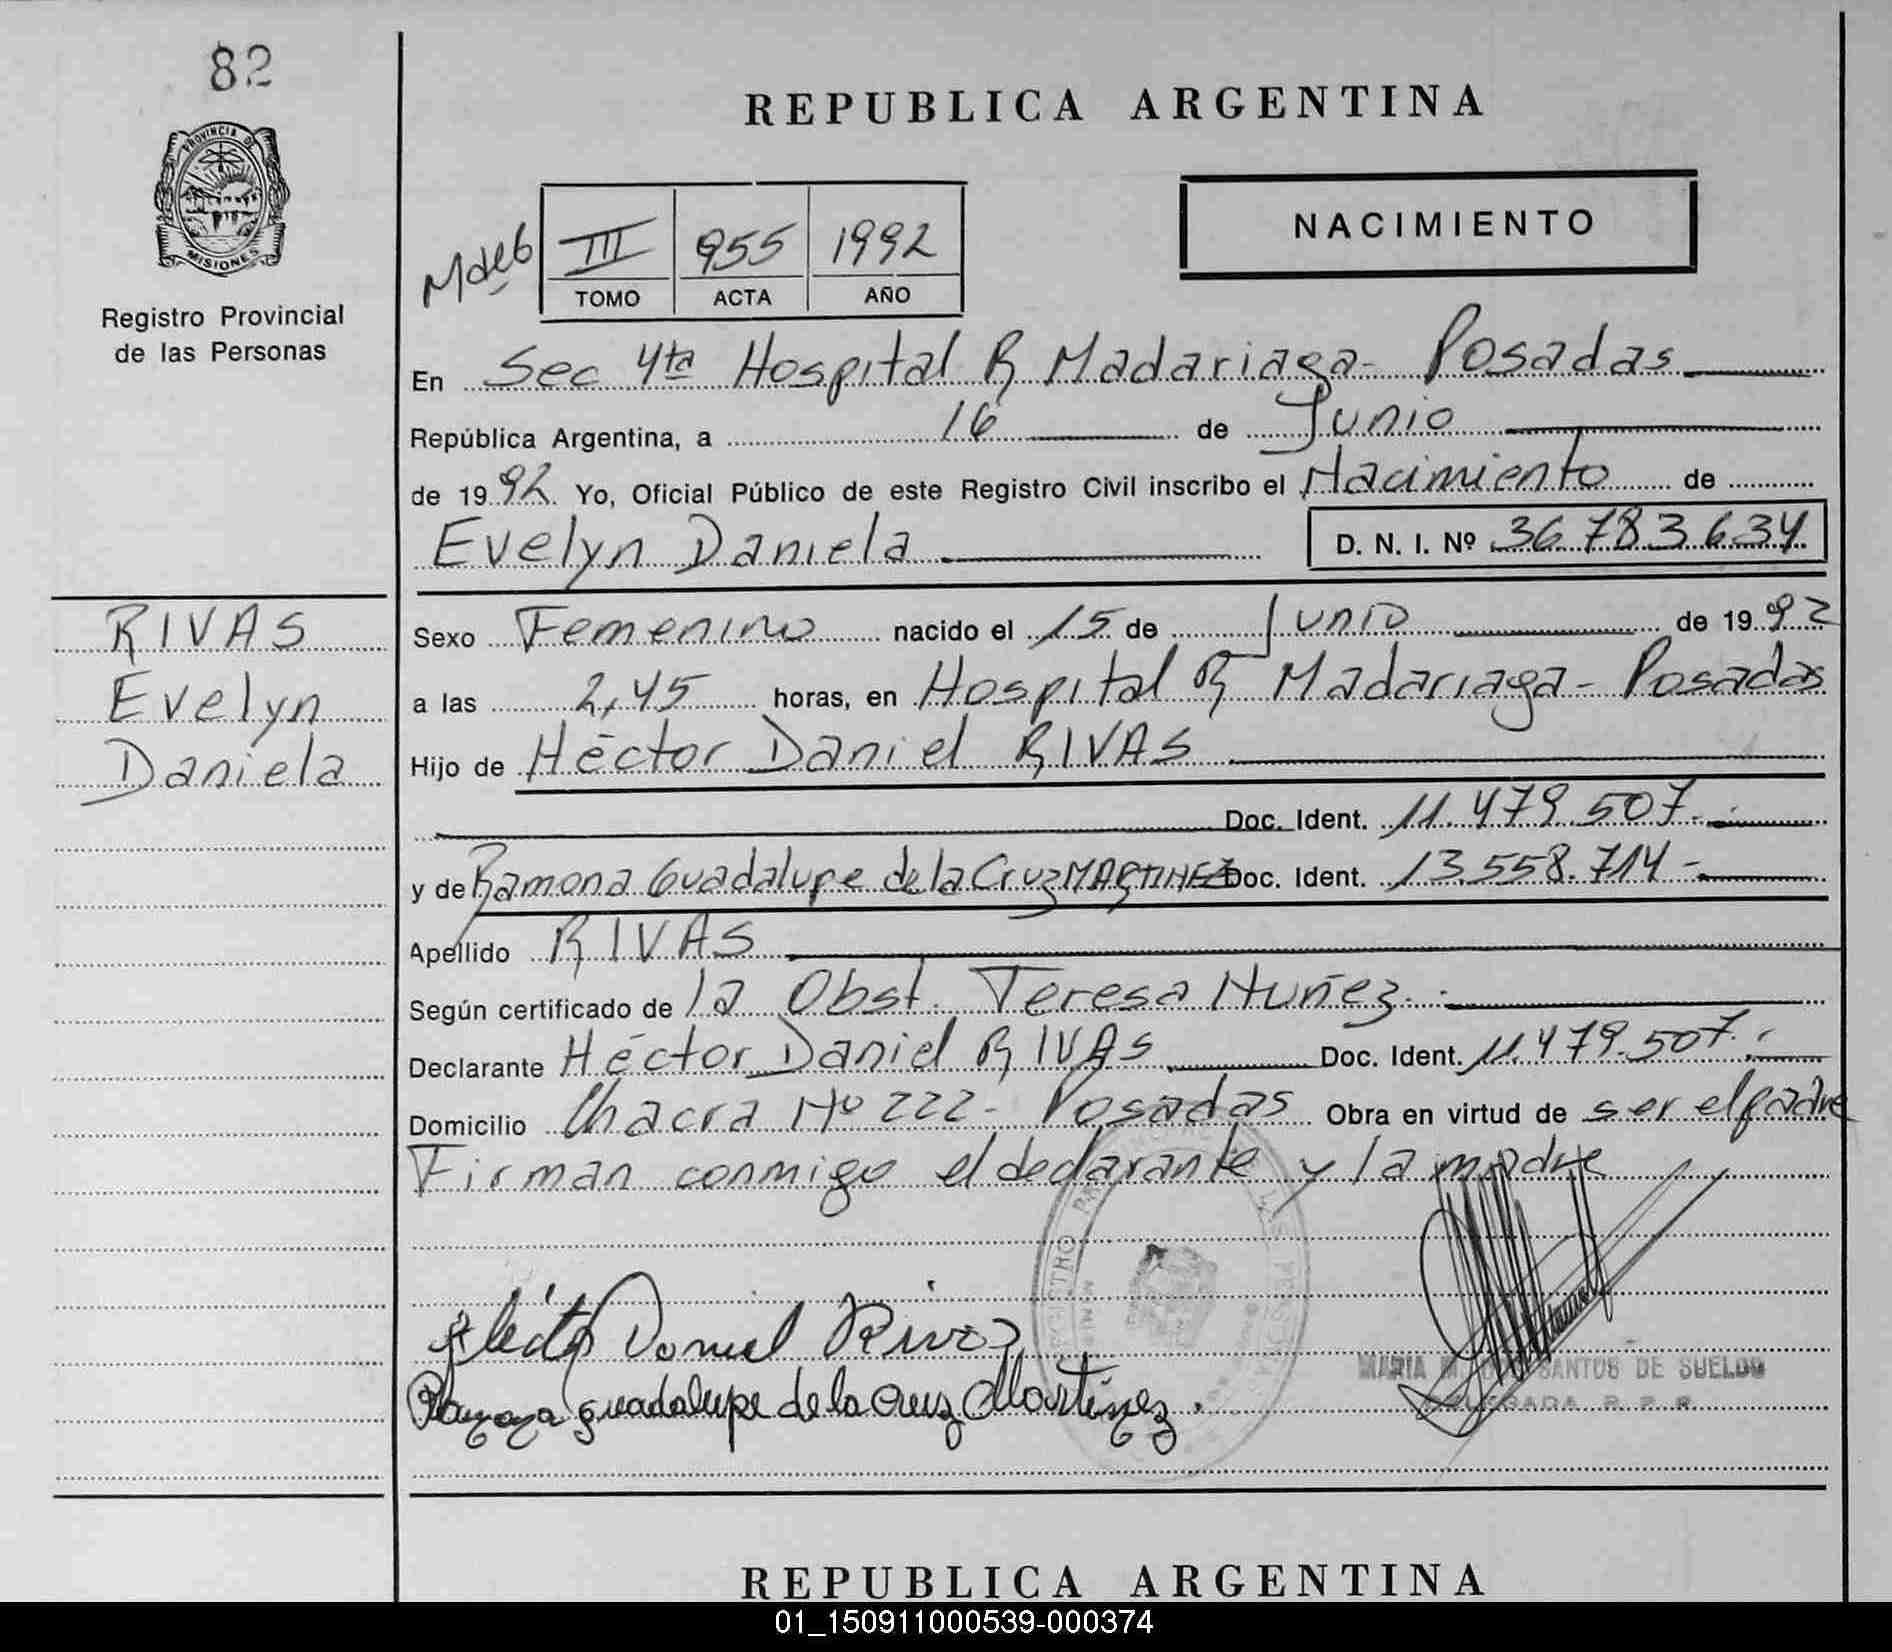 82
PROVINCIA DE
MISIONES
Registro Provincial
de las Personas
RIVAS
Evelyn
Daniela
REPUBLICA ARGENTINA
NACIMIENTO
III 955 1992
TOMO ACTA AÑO
En Sec 4ta Hospital R Madariaga - Posadas
República Argentina, a 16 de Junio
de 1992 Yo, Oficial Público de este Registro Civil inscribo el Nacimiento de
Evelyn Daniela D. N. I. Nº 36.783.634
Sexo Femenino nacido el 15 de Junio de 1992
a las 2,45 horas, en Hospital R Madariaga - Posadas
Hijo de Héctor Daniel RIVAS
Doc. Ident. 11.479.507.-
y de Ramona Guadalupe de la Cruz MARTINEZ Doc. Ident. 13.558.714 -
Apellido RIVAS
Según certificado de la Obst. Teresa Nuñez.-
Declarante Héctor Daniel RIVAS Doc. Ident. 11.479.507.-
Domicilio Chacra Nº 222 - Posadas Obra en virtud de ser el padre
Firman conmigo el declarante y la madre
Héctor Daniel Rivas
Ramona guadalupe de la cruz Martínez.
MARIA SANTOS DE SUELDO
REPUBLICA ARGENTINA
01_150911000539-000374